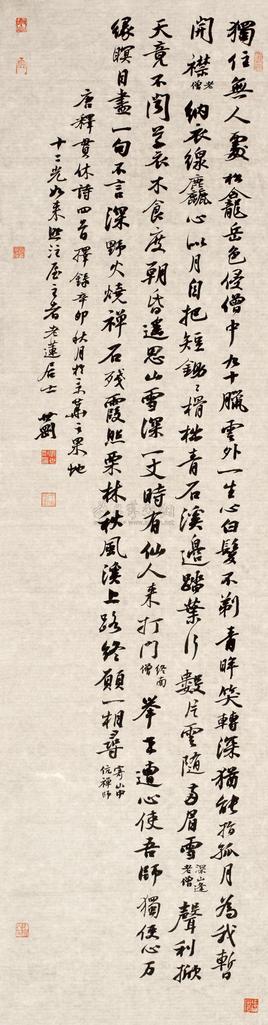 獨住無人處松龕岳色侵僧中九十臘雲外一生心白髮不剃青眸笑轉深猶能指孤月為我暫
開襟老僧衲衣線麤心似月自把短鋤鋤榾柮青石溪邊踏葉行數片雲隨兩眉雪深山逢老僧聲利掀
天竟不聞草衣木食度朝昏遙思山雪深一丈時有仙人來打門終南僧舉世遭心使吾師獨使心万
緣瞑目盡一句不言深野火燒禪石殘霞照栗林秋風溪上路終願一相尋寄山中伉禪師
唐釋貫休詩四首擇錄辛卯秋月於
十二光如來照注
老蓮居士